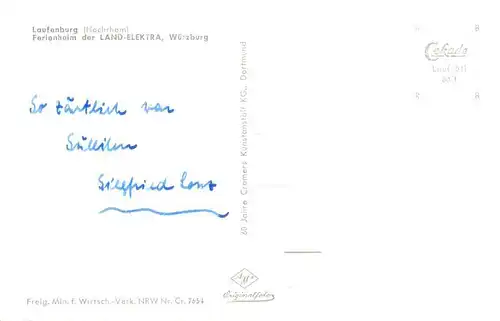 Laufenburg (Hochrhein)
Ferienheim der LAND-ELEKTRA, Würzburg
Cekade
R
R
R
So zärtlich war
Suleiken
Siegfried Lenz
60 Jahre Cramers Kunstanstalt KG., Dortmund
Agfa
Originalfoto
Freig. Min. f. Wirtsch.-Verk. NRW Nr. Cr. 7654